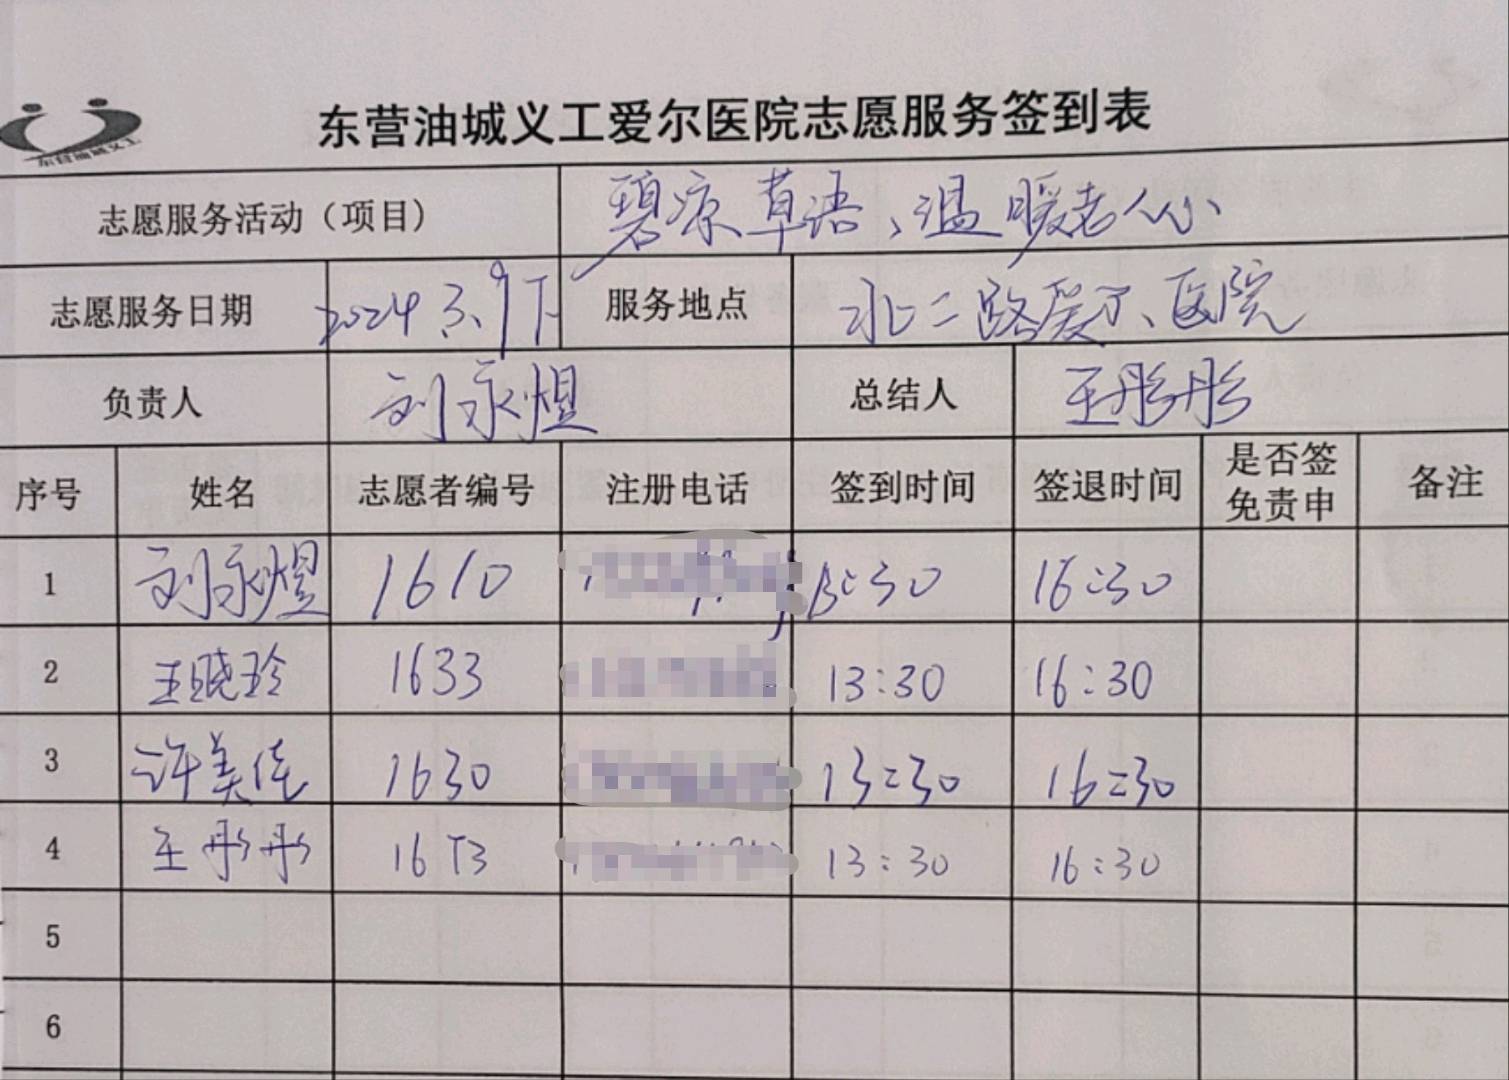 东营油城义工
东营油城义工爱尔医院志愿服务签到表
志愿服务活动（项目） 碧凉草语、温暖老人心
志愿服务日期 2024 3.9下 服务地点 北二路爱尔医院
负责人 刘永煜 总结人 王彤彤
序号 姓名 志愿者编号 注册电话 签到时间 签退时间 是否签免责申 备注
1 刘永煜 1610 13:30 16:30
2 王晓玲 1633 13:30 16:30
3 许美佳 1630 13:30 16:30
4 王彤彤 1673 13:30 16:30
5
6